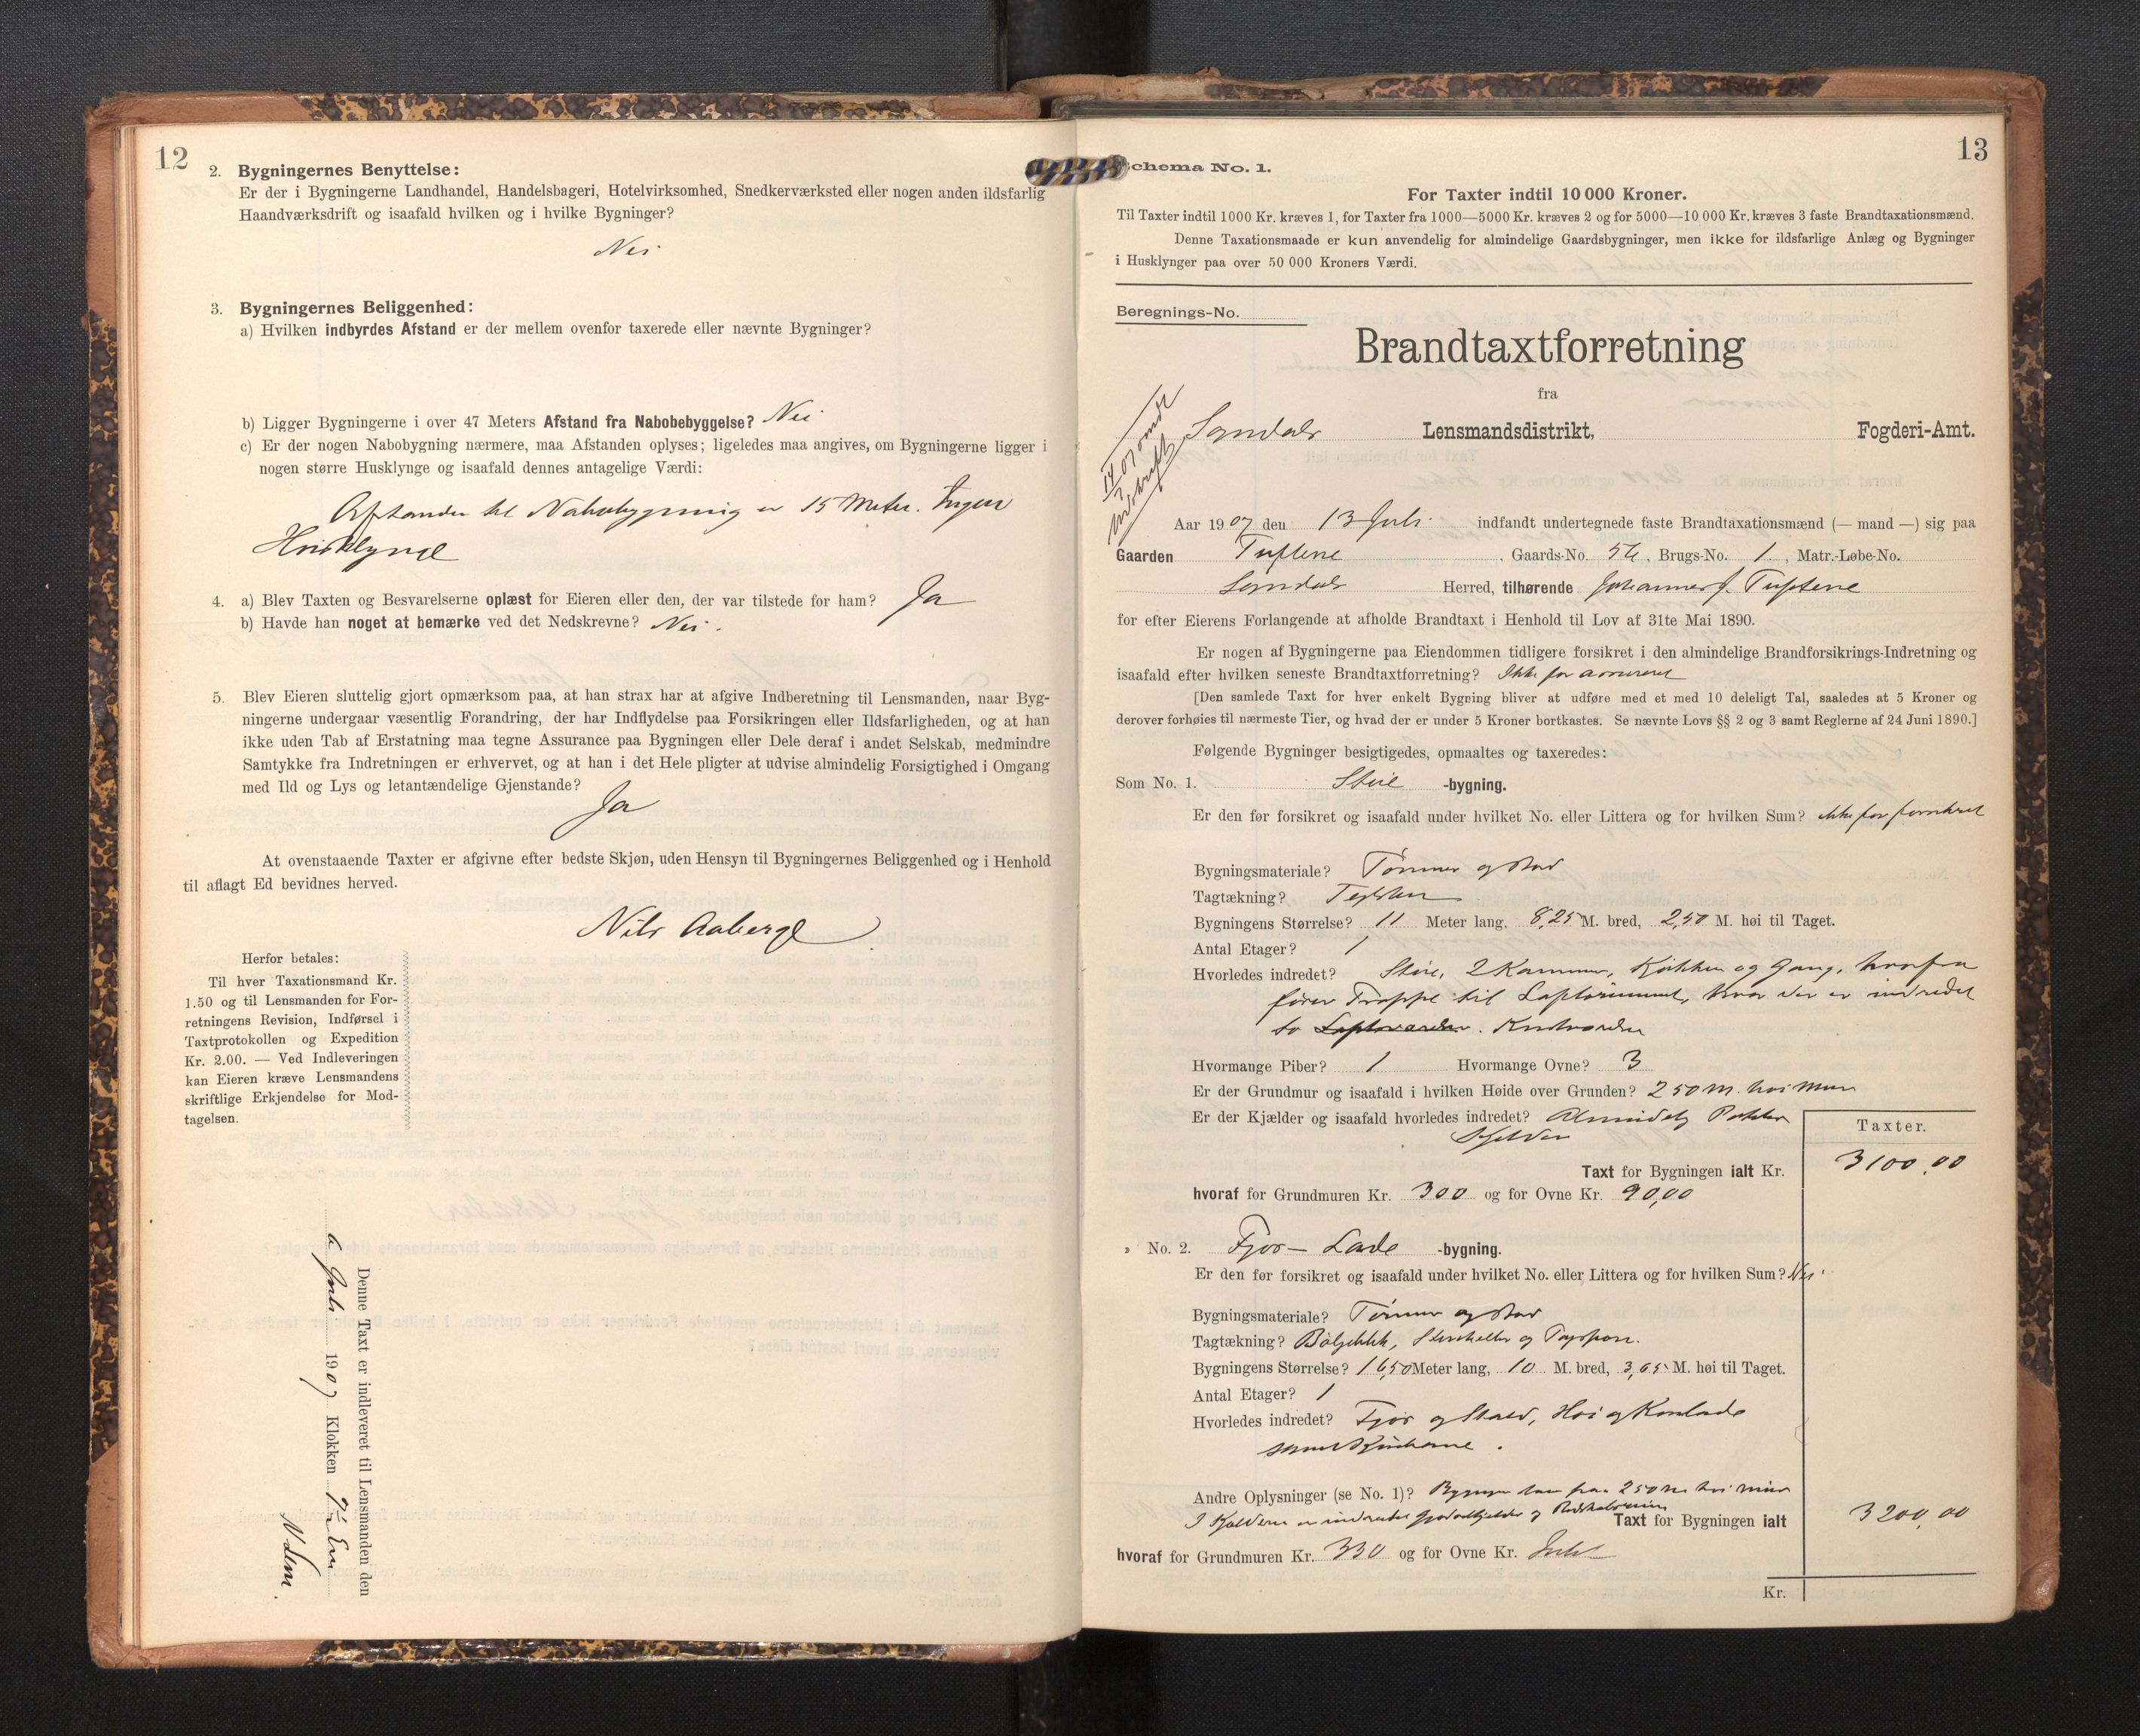 12
2. Bygningernes Benyttelse:
Er der i Bygningerne Landhandel, Handelsbageri, Hotelvirksomhed, Snedkerværksted eller nogen anden ildsfarlig
Haandværksdrift og isaafald hvilken og i hvilke Bygninger?
Nei
3. Bygningernes Beliggenhed:
a) Hvilken indbyrdes Afstand er der mellem ovenfor taxerede eller nævnte Bygninger?
b) Ligger Bygningerne i over 47 Meters Afstand fra Nabobebyggelse? Nei
c) Er der nogen Nabobygning nærmere, maa Afstanden oplyses; ligeledes maa angives, om Bygningerne ligger i
nogen større Husklynge og isaafald dennes antagelige Værdi:
Afstanden til Nabobygning er 15 Meter. Ingen
Husklynge
4. a) Blev Taxten og Besvarelserne oplæst for Eieren eller den, der var tilstede for ham? Ja
b) Havde han noget at bemærke ved det Nedskrevne? Nei.
5. Blev Eieren sluttelig gjort opmærksom paa, at han strax har at afgive Indberetning til Lensmanden, naar Byg-
ningerne undergaar væsentlig Forandring, der har Indflydelse paa Forsikringen eller Ildsfarligheden, og at han
ikke uden Tab af Erstatning maa tegne Assurance paa Bygningen eller Dele deraf i andet Selskab, medmindre
Samtykke fra Indretningen er erhvervet, og at han i det Hele pligter at udvise almindelig Forsigtighed i Omgang
med Ild og Lys og letantændelige Gjenstande?
Ja
At ovenstaaende Taxter er afgivne efter bedste Skjøn, uden Hensyn til Bygningernes Beliggenhed og i Henhold
til aflagt Ed bevidnes herved.
Nils Aaberge
Herfor betales:
Til hver Taxationsmand Kr.
1.50 og til Lensmanden for For-
retningens Revision, Indførsel i
Taxtprotokollen og Expedition
Kr. 2.00. — Ved Indleveringen
kan Eieren kræve Lensmandens
skriftlige Erkjendelse for Mod-
tagelsen.
Denne Taxt er indleveret til Lensmanden den
6 Juli 1907 Klokken 7 Em
13
Schema No. 1.
For Taxter indtil 10 000 Kroner.
Til Taxter indtil 1000 Kr. kræves 1, for Taxter fra 1000—5000 Kr. kræves 2 og for 5000—10 000 Kr. kræves 3 faste Brandtaxationsmænd.
Denne Taxationsmaade er kun anvendelig for almindelige Gaardsbygninger, men ikke for ildsfarlige Anlæg og Bygninger
i Husklynger paa over 50 000 Kroners Værdi.
Beregnings-No.
Brandtaxtforretning
fra
Sogndals Lensmandsdistrikt, Fogderi-Amt.
Aar 1907 den 13 Juli indfandt undertegnede faste Brandtaxationsmænd (— mand —) sig paa
Gaarden Tuftene, Gaards-No. 56, Brugs-No. 1, Matr.-Løbe-No.
Sogndals Herred, tilhørende Johannes J. Tuftene
for efter Eierens Forlangende at afholde Brandtaxt i Henhold til Lov af 31te Mai 1890.
Er nogen af Bygningerne paa Eiendommen tidligere forsikret i den almindelige Brandforsikrings-Indretning og
isaafald efter hvilken seneste Brandtaxtforretning? Ikke før assureret
[Den samlede Taxt for hver enkelt Bygning bliver at udføre med et med 10 deleligt Tal, saaledes at 5 Kroner og
derover forhøies til nærmeste Tier, og hvad der er under 5 Kroner bortkastes. Se nævnte Lovs §§ 2 og 3 samt Reglerne af 24 Juni 1890.]
Følgende Bygninger besigtigedes, opmaaltes og taxeredes:
Som No. 1. Stue -bygning.
Er den før forsikret og isaafald under hvilket No. eller Littera og for hvilken Sum? ikke før forsikret
Bygningsmateriale? Tømmer og Bord
Tagtækning? Teglsten
Bygningens Størrelse? 11 Meter lang, 8,25 M. bred, 2,50 M. høi til Taget.
Antal Etager? 1
Hvorledes indredet? Stue, 2 Kammer, Køkken og Gang, hvorfra
fører Trappe til Loftsrummet, hvor der er indredet
to Kvistværelser
Hvormange Piber? 1 Hvormange Ovne? 3
Er der Grundmur og isaafald i hvilken Høide over Grunden? 2 50 M. høi Mur
Er der Kjælder og isaafald hvorledes indredet? Almindelig Potet
Kjelder
Taxter.
Taxt for Bygningen ialt Kr. 3100,00
hvoraf for Grundmuren Kr. 300 og for Ovne Kr. 90,00
No. 2. Fjos- Lade -bygning.
Er den før forsikret og isaafald under hvilket No. eller Littera og for hvilken Sum? Nei
Bygningsmateriale? Tømmer og Bord
Tagtækning? Bølgeblik, Stenheller og Tagspon.
Bygningens Størrelse? 16,50 Meter lang, 10 M. bred, 3,65 M. høi til Taget.
Antal Etager? 1
Hvorledes indredet? Fjos og Stald, Høi og Kornlade
samt
Andre Oplysninger (se No. 1)? Bygningen staar paa 2 50 m høi mur
I Kjælderen er indredet Gjødselkjelder og Redskabsrum
Taxt for Bygningen ialt 3200,00
hvoraf for Grundmuren Kr. 330 og for Ovne Kr. Intet
Kr.